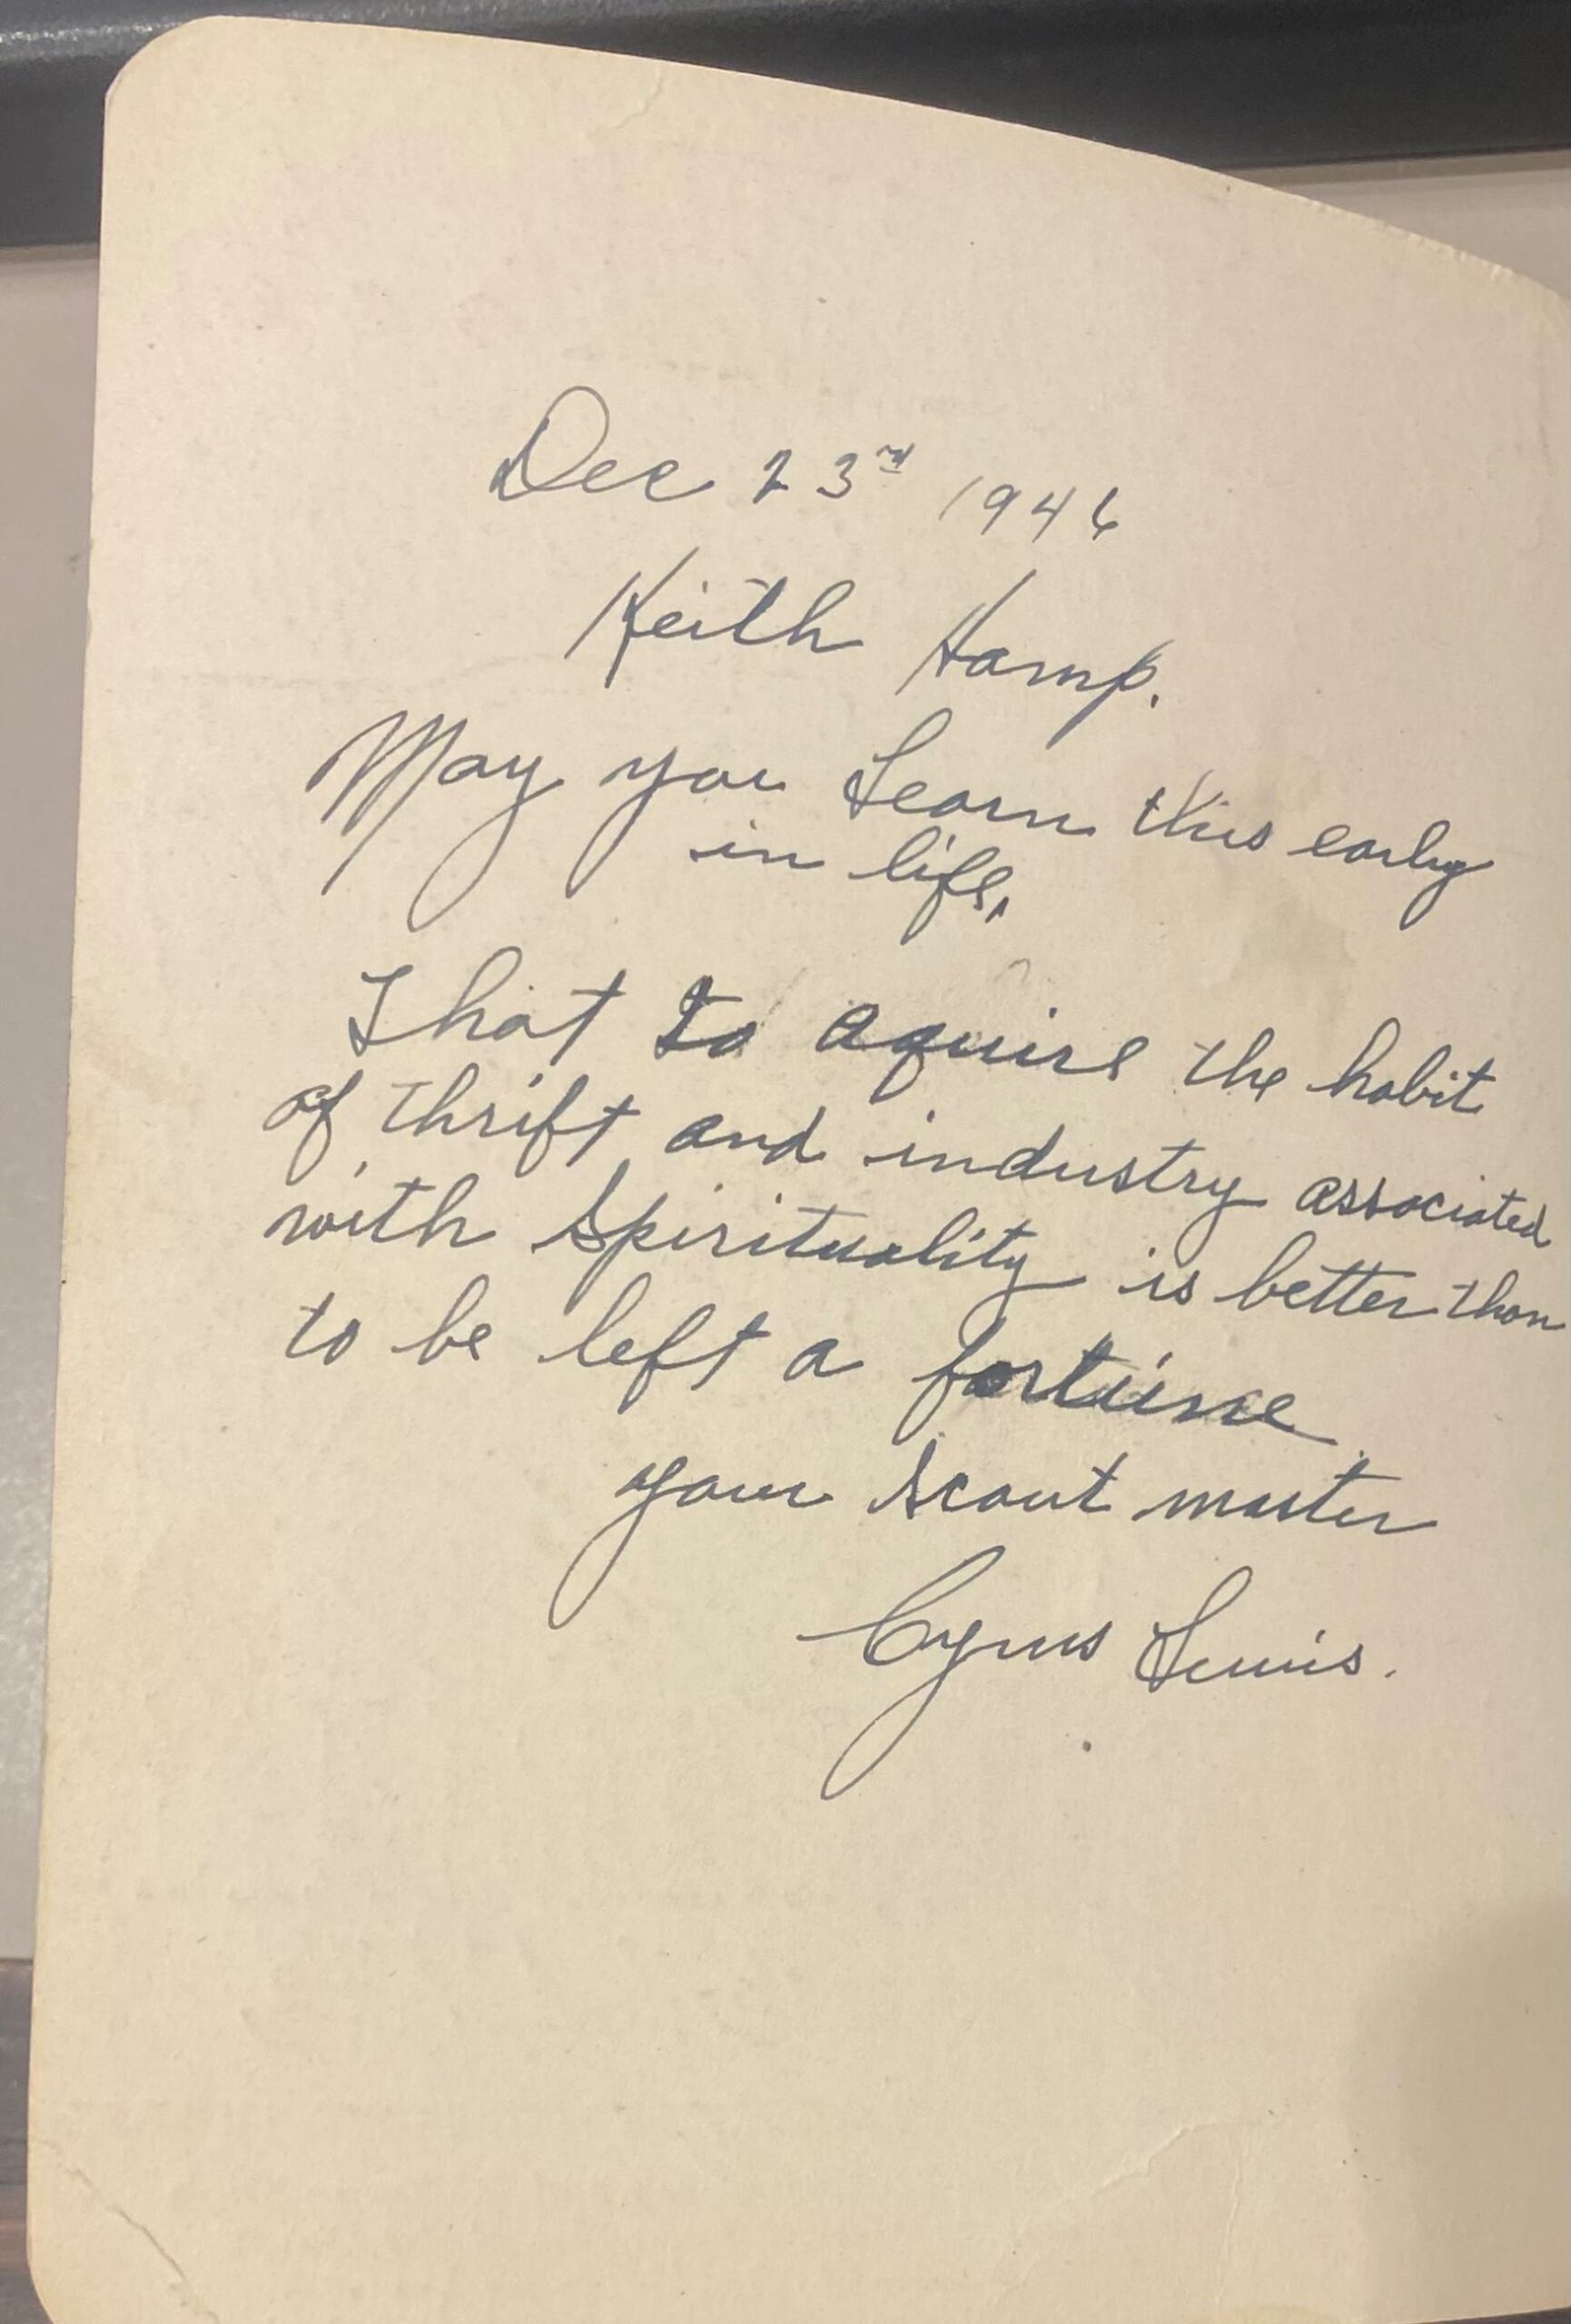 Dec 23rd 1946
Keith Hamp.
May you Learn this early
in life,
That to aquire the habit
of thrift and industry associated
with Spirituality is better than
to be left a fortune
your Scout master
Cyrus Lewis.